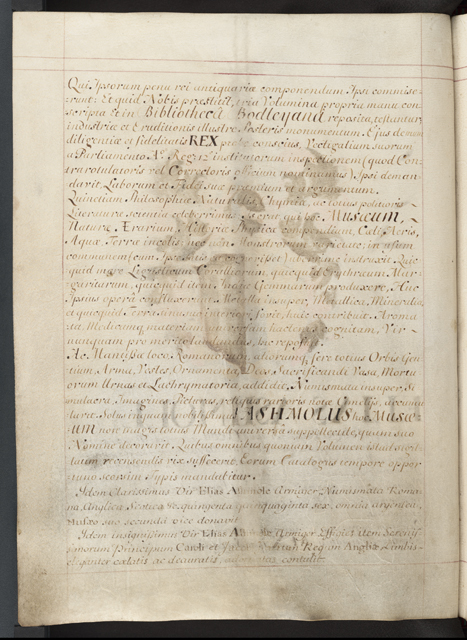 Qui Ipsorum penu rei antiquariæ componendum Ipsi commise-
runt: Et quid Nobis præstitit, tria Volumina propria manu con-
scripta et in Bibliotheca Bodleyana reposita, testantur
industriæ et Eruditionis illustre Posteris monumentum. Ejus demum
diligentiæ et fidelitatis REX probe conscius, Vectigalium suorum
a Parliamento Aº Regis 12º institutorum inspectionem (quod Con-
trarotulatoris vel Correctoris officium nominamus) Ipsi deman-
davit, Laborum et Fidei suæ præmium et argumentum.
Quinetiam Philosophiæ Naturalis, Chymiæ, ac totius politioris
Literaturæ scientia celeberrimus
Naturæ Ærarium, Historiæ Physicæ compendium, Cæli, Aeris,
Aquæ, Terræ incolis, nec non Monstrorum
quid ingre
garitarum, quicquid item Indiæ Gemmarum produxere, Huc
Ipsius opera confluxerunt. Metalla insuper, Metallica, Mineralia,
et quicquid Terra in suis interioribus fovit, huic contribuit. Aroma-
ta, Medicamq materiam universam hactenus cognitam, Ver-
Ac Mantissæ loco, Romanorum, aliorumq fere totius Orbis Gen-
tium, Arma, Vestes, Ornamenta, Deos, Sacrificandi Vasa, Mortu-
orum Urnas et Lachrymatoria, addidit. Numismata insuper, Si-
mulacra, Imagines, Picturas, reliquis rarioris notæ Cimeliis, accumu-
lavit. Solus inquam nobilissimus ASHMOLUS hoc Musæ-
um non magis totius Mundi quam suppellectile, quam suo
Nomine decoravit. Quibus omnibus quoniam Volumen istud sigil-
latim recensendis vix suffecerit, Eorum Catalogus tempore oppor-
tuno seorsim Typis mandabitur.
Idem Clarissimus Vir Elias Ashmole Armiger Numismata Roma-
na, Anglica, Scotica, quinquaginta sex, omnia argentea,
Musæo suo secunda vice donavit.
Idem insignissimus Vir Elias Ashmole Armiger Effigies item Sereniss-
imorum Principum Caroli et Jacobi Fratrum Regum Angliæ Limbis
eleganter cælatis ac deauratis, adornatas contulit.